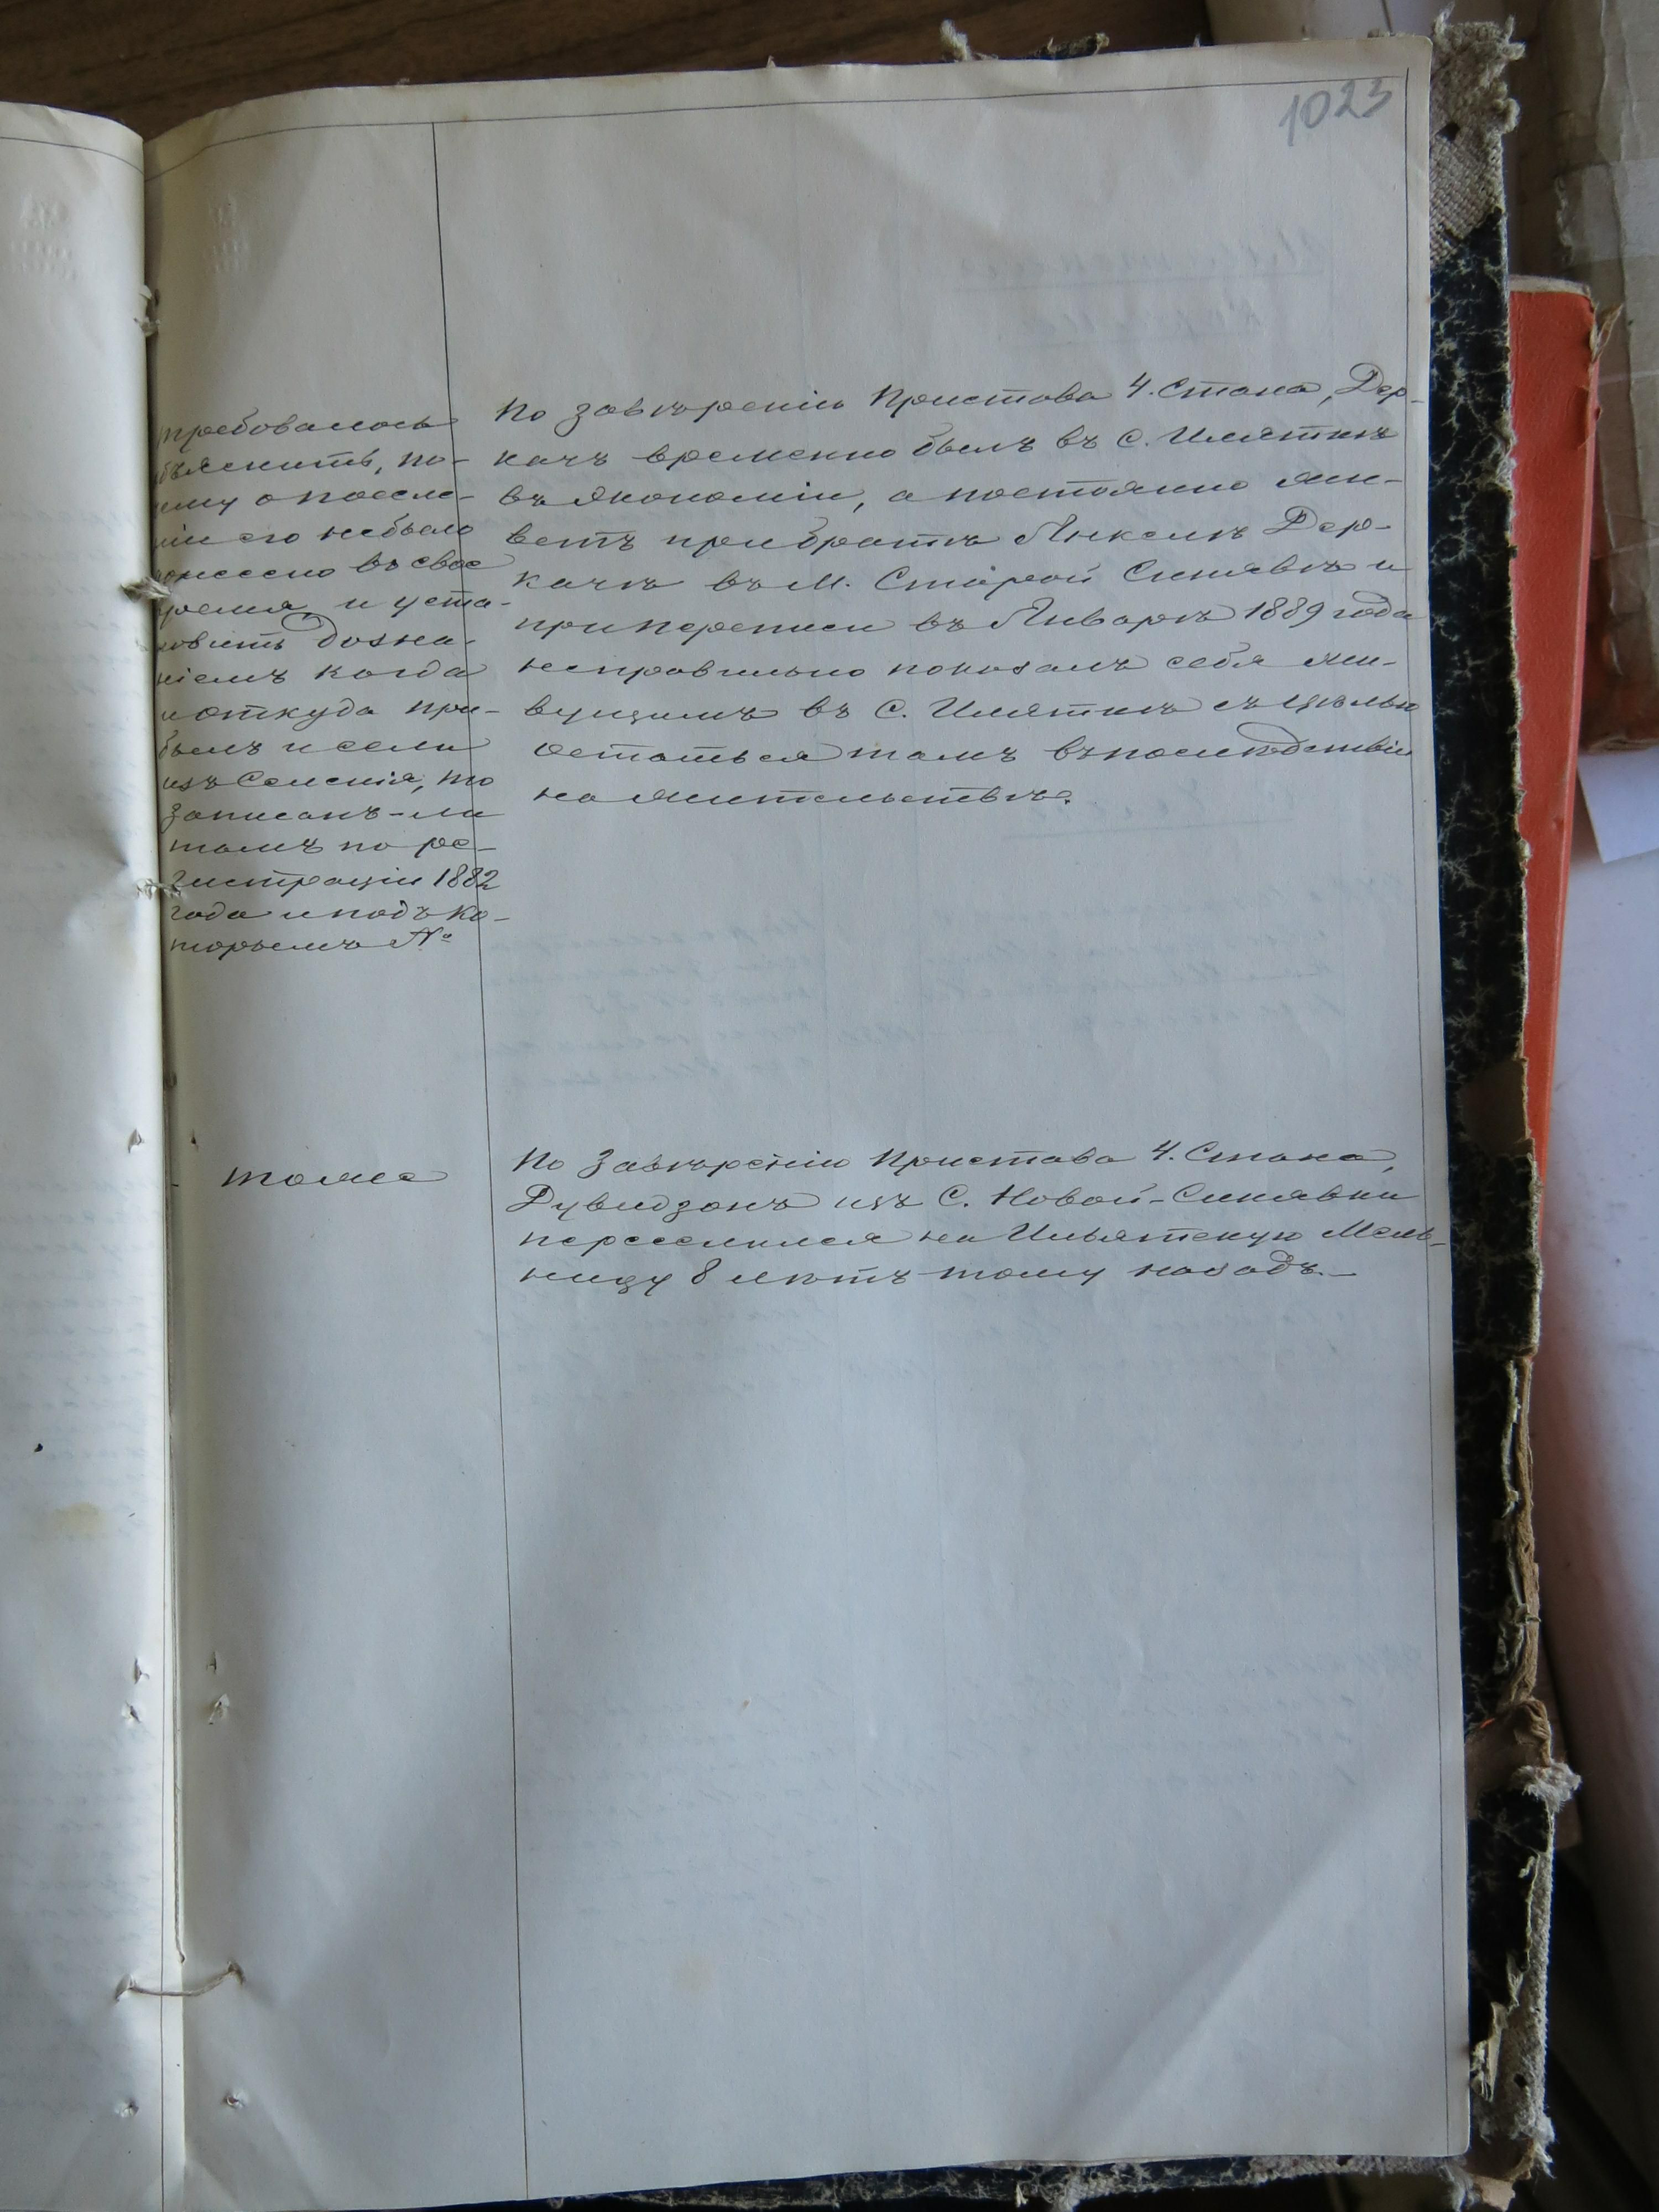 1023
требовалось
бъяснить, по-
ему о поселе-
ніи его небыло
донесено въ свое
время, и уста-
новить дозна-
ніемъ когда
и откуда при-
былъ и если
изъ Селенія, то
записанъ-ли
тамъ по ре-
гистраціи 1882
года и подъ ко-
торымъ №
По завѣренію Пристава 4. Стана, Дер-
качъ временно былъ въ С. Илятки
въ экономіи, а постоянно жи-
ветъ при братѣ Янкелѣ Дер-
качѣ въ М. Старой Синявкѣ и
при переписи въ Январѣ 1889 года
неправильно показалъ себя жи-
вущимъ въ С. Иляткѣ съ цѣлью
остаться тамъ въпослѣдствіи
на жительствѣ.
тоже
По завѣренію Пристава 4. Стана,
Дувидзонъ изъ С. Новой-Синявки
переселился на Ильятскую Мель-
ницу 8 лѣтъ тому назадъ.—